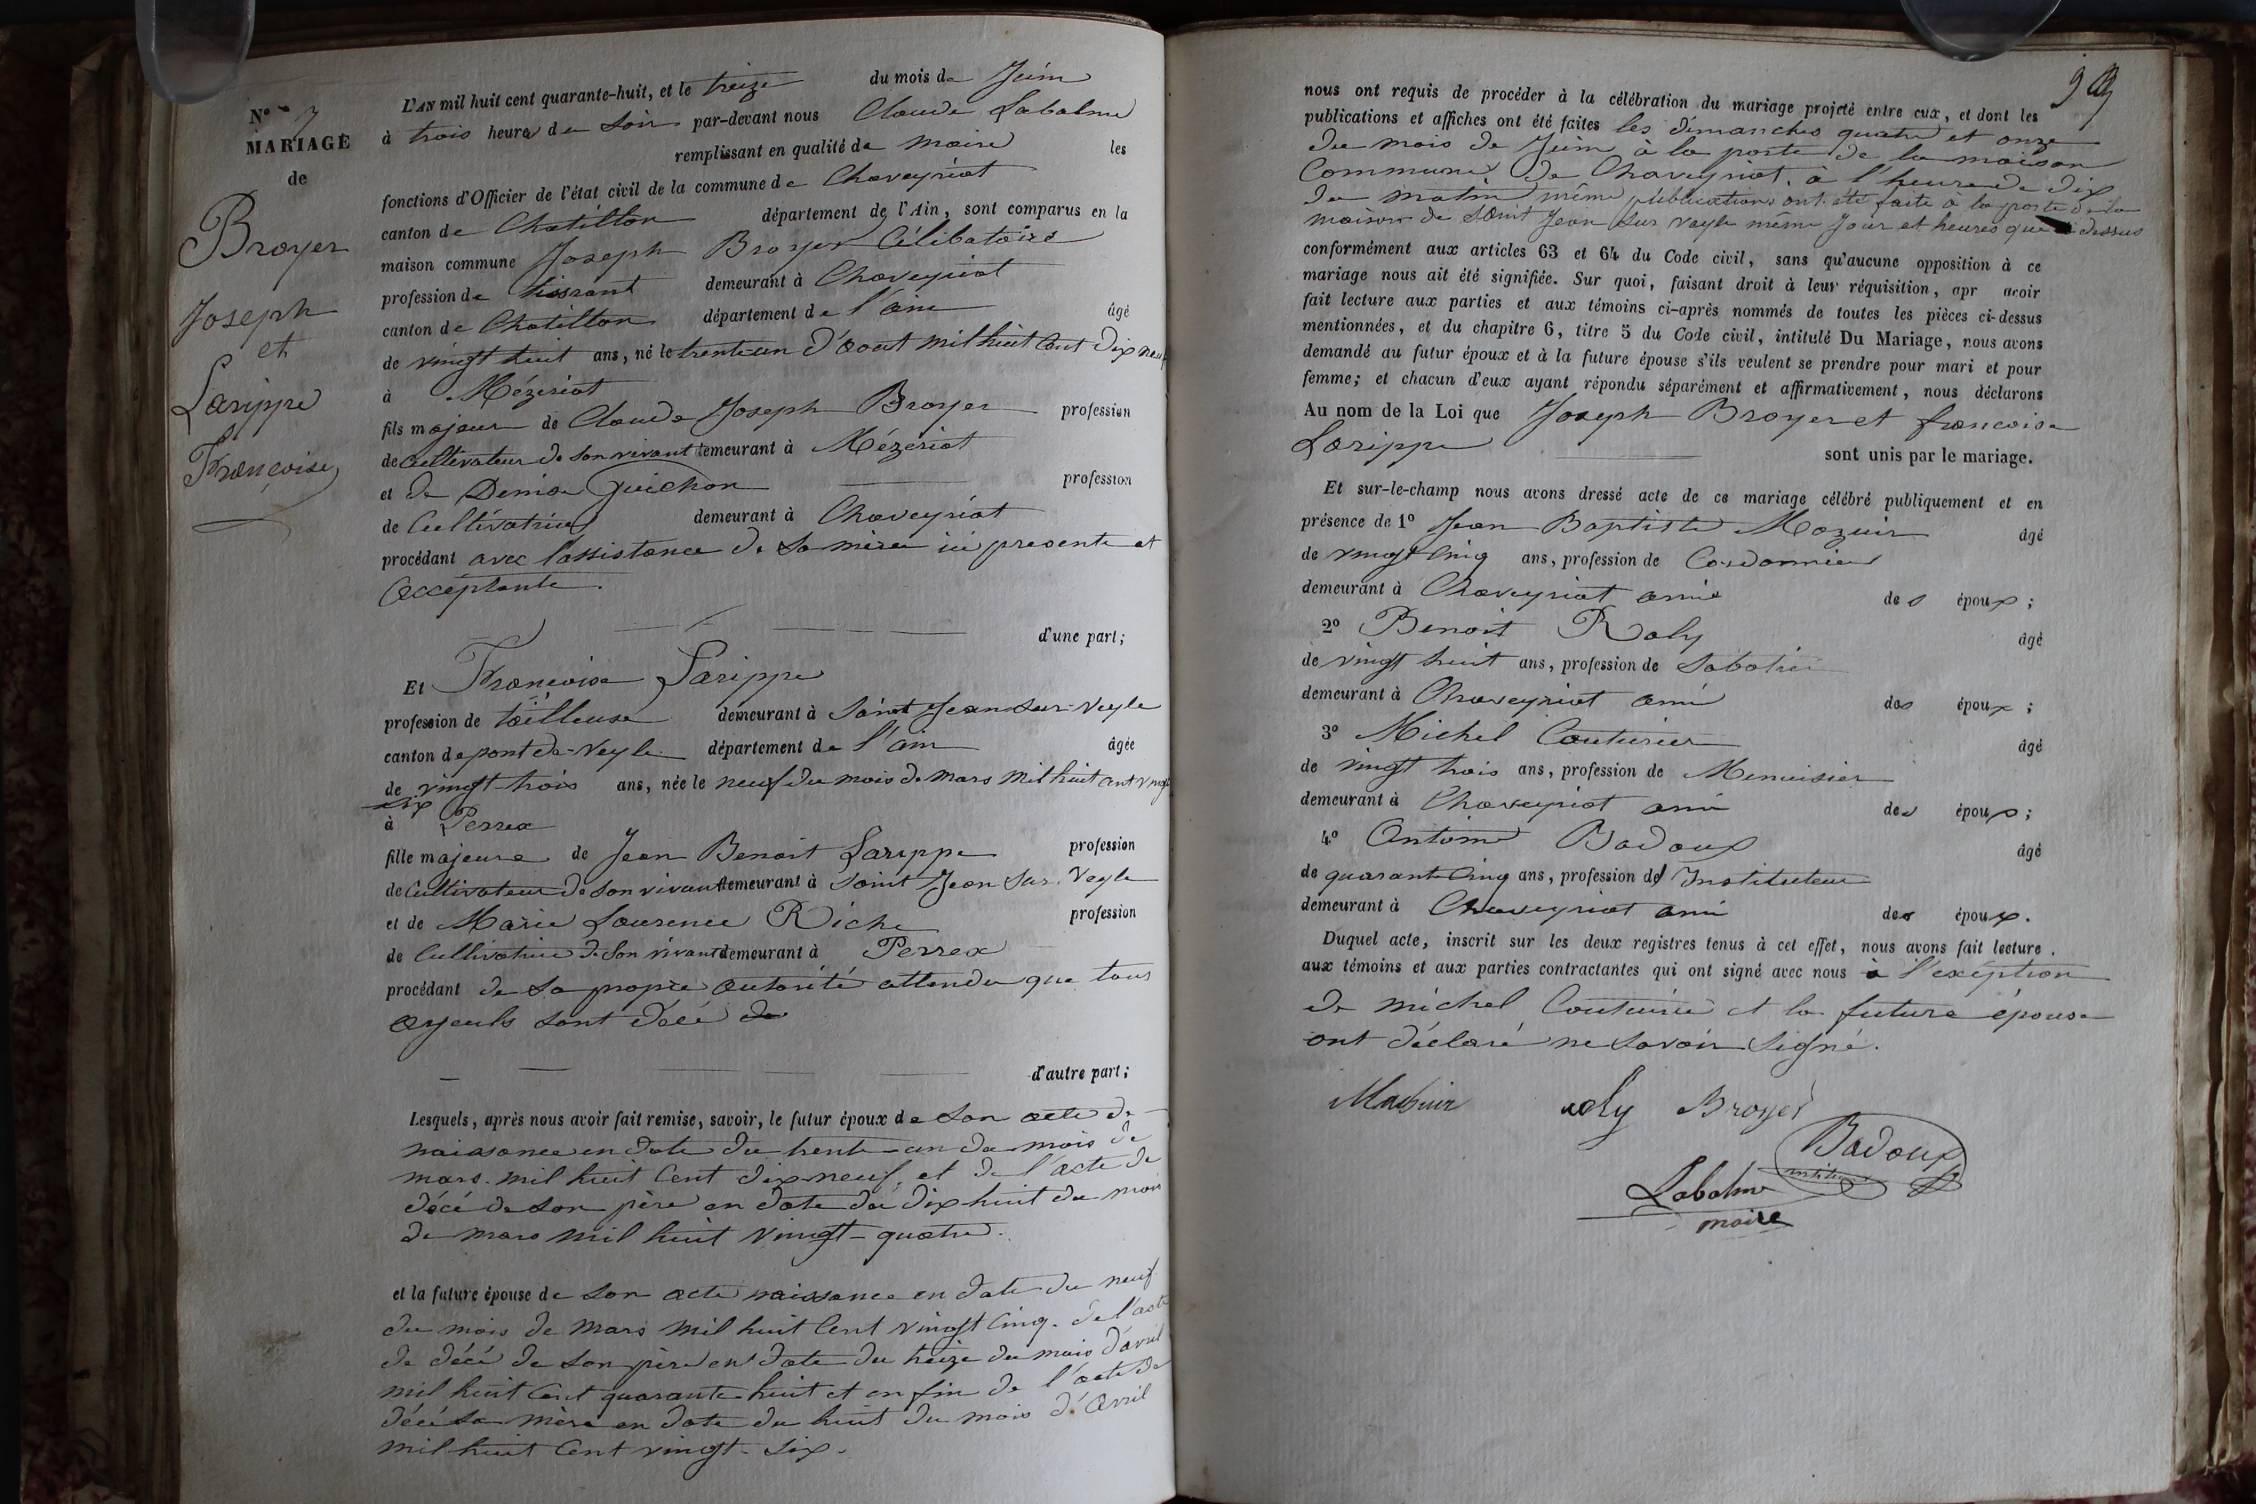 N° 7
MARIAGE
de
Broyer
Joseph
et
Larippe
Françoise
L'AN mil huit cent quarante-huit, et le treize du mois de Juin
à trois heure de Soir par-devant nous Claude Labalme
remplissant en qualité de maire les
fonctions d'Officier de l'état civil de la commune de Chaveyriat
canton de Chatillon département de l'Ain, sont comparus en la
maison commune Joseph Broyer Célibataire
profession de tissrant demeurant à Chaveyriat
canton de Chatillon département de l'ain âgé
de vingt huit ans, né le trente un d'août mil huit Cent dix neuf
à Mézériat
fils majeur de Claude Joseph Broyer profession
de Cultivateur de son vivant demeurant à Mézériat
et de Denise Guichon profession
de Cultivatrice demeurant à Chaveyriat
procédant avec l'assistance de sa mère ici presente et
acceptante.
d'une part;
Et Francoise Larippe
profession de tailleuse demeurant à Saint Jean-sur-Veyle
canton de pont-de-Veyle département de l'ain âgée
de vingt trois ans, née le neuf du mois de mars mil huit cent vingt
à Perrex
fille majeure de Jean Benoit Larippe profession
de Cultivateur de son vivant demeurant à Saint Jean Sur Veyle
et de Marie Laurence Riche profession
de Cultivatrice de Son vivant demeurant à Perrex
procédant de sa propre autorité attendu que tous
ayeuls sont décé de
d'autre part;
Lesquels, après nous avoir fait remise, savoir, le futur époux de son acte de
naissance en date du trente-un du mois de
mars mil huit Cent dix neuf, et de l'acte de
décé de son père en date du dix huit du mois
de mars mil huit vingt-quatre.
et la future épouse de son acte naissance en date du neuf
du mois de mars mil huit Cent vingt Cinq. de l'acte
de décé de son père en date du treize du mois d'avril
mil huit Cent quarante huit et en fin de l'acte de
décé sa mère en date du huit du mois d'Avril
mil huit Cent vingt-six.
nous ont requis de procéder à la célébration du mariage projeté entre eux, et dont les
publications et affiches ont été faites les dimanches quatre et onze
du mois de Juin à la porte de la maison
Commune de Chaveyriat, à l'heure de dix
du matin même publications ont été faite à la porte de la
maison de Saint Jean sur Veyle même jour et heures que ci dessus
conformément aux articles 63 et 64 du Code civil, sans qu'aucune opposition à ce
mariage nous ait été signifiée. Sur quoi, faisant droit à leur réquisition, apr avoir
fait lecture aux parties et aux témoins ci-après nommés de toutes les pièces ci-dessus
mentionnées, et du chapitre 6, titre 5 du Code civil, intitulé Du Mariage, nous avons
demandé au futur époux et à la future épouse s'ils veulent se prendre pour mari et pour
femme; et chacun d'eux ayant répondu séparément et affirmativement, nous déclarons
Au nom de la Loi que Joseph Broyer et francoise
Larippe sont unis par le mariage.
Et sur-le-champ nous avons dressé acte de ce mariage célébré publiquement et en
présence de 1° Jean Baptiste Mazuir âgé
de vingt Cinq ans, profession de Cordonnier
demeurant à Chaveyriat ami des époux;
2° Benoit Roly âgé
de vingt huit ans, profession de Sabotier
demeurant à Chaveyriat ami des époux;
3° Michel Couturier âgé
de vingt trois ans, profession de Menuisier
demeurant à Chaveyriat ami des époux;
4° Antoine Badoux âgé
de quarante Cinq ans, profession de Instituteur
demeurant à Chaveyriat ami des époux.
Duquel acte, inscrit sur les deux registres tenus à cet effet, nous avons fait lecture.
aux témoins et aux parties contractantes qui ont signé avec nous à l'exéption
de michel Couturier et la future épouse
ont déclaré ne savoir signé.
Mazuir Broyer
Badoux
Labalme
maire